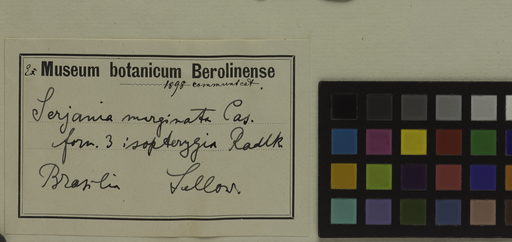 Ex Museum botanicum Berolinense
1898 communicat.
Serjania marginata Cas.
form. 3 isopterygia Radlk
Brasilia Sellow.